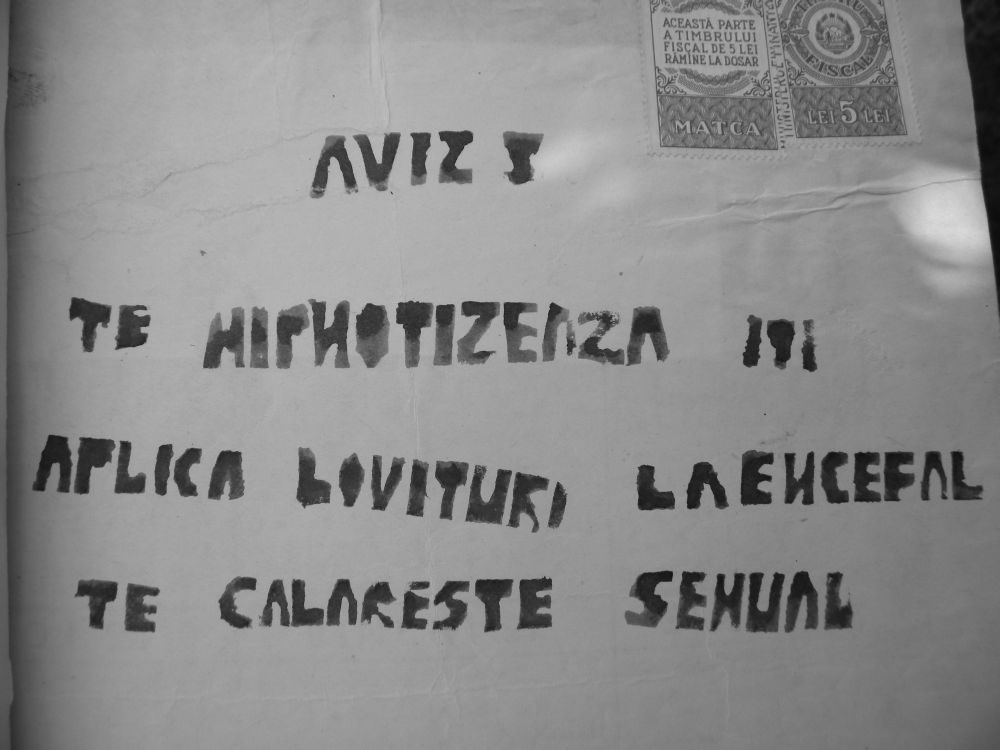 ACEASTĂ PARTE
A TIMBRULUI
FISCAL DE 5 LEI
RĂMÎNE LA DOSAR
MATCA
FISCAL
LEI 5 LEI
AVIZ
TE HIPNOTIZEAZA ITI
APLICA LOVITURI LA ENCEFAL
TE CALARESTE SEXUAL